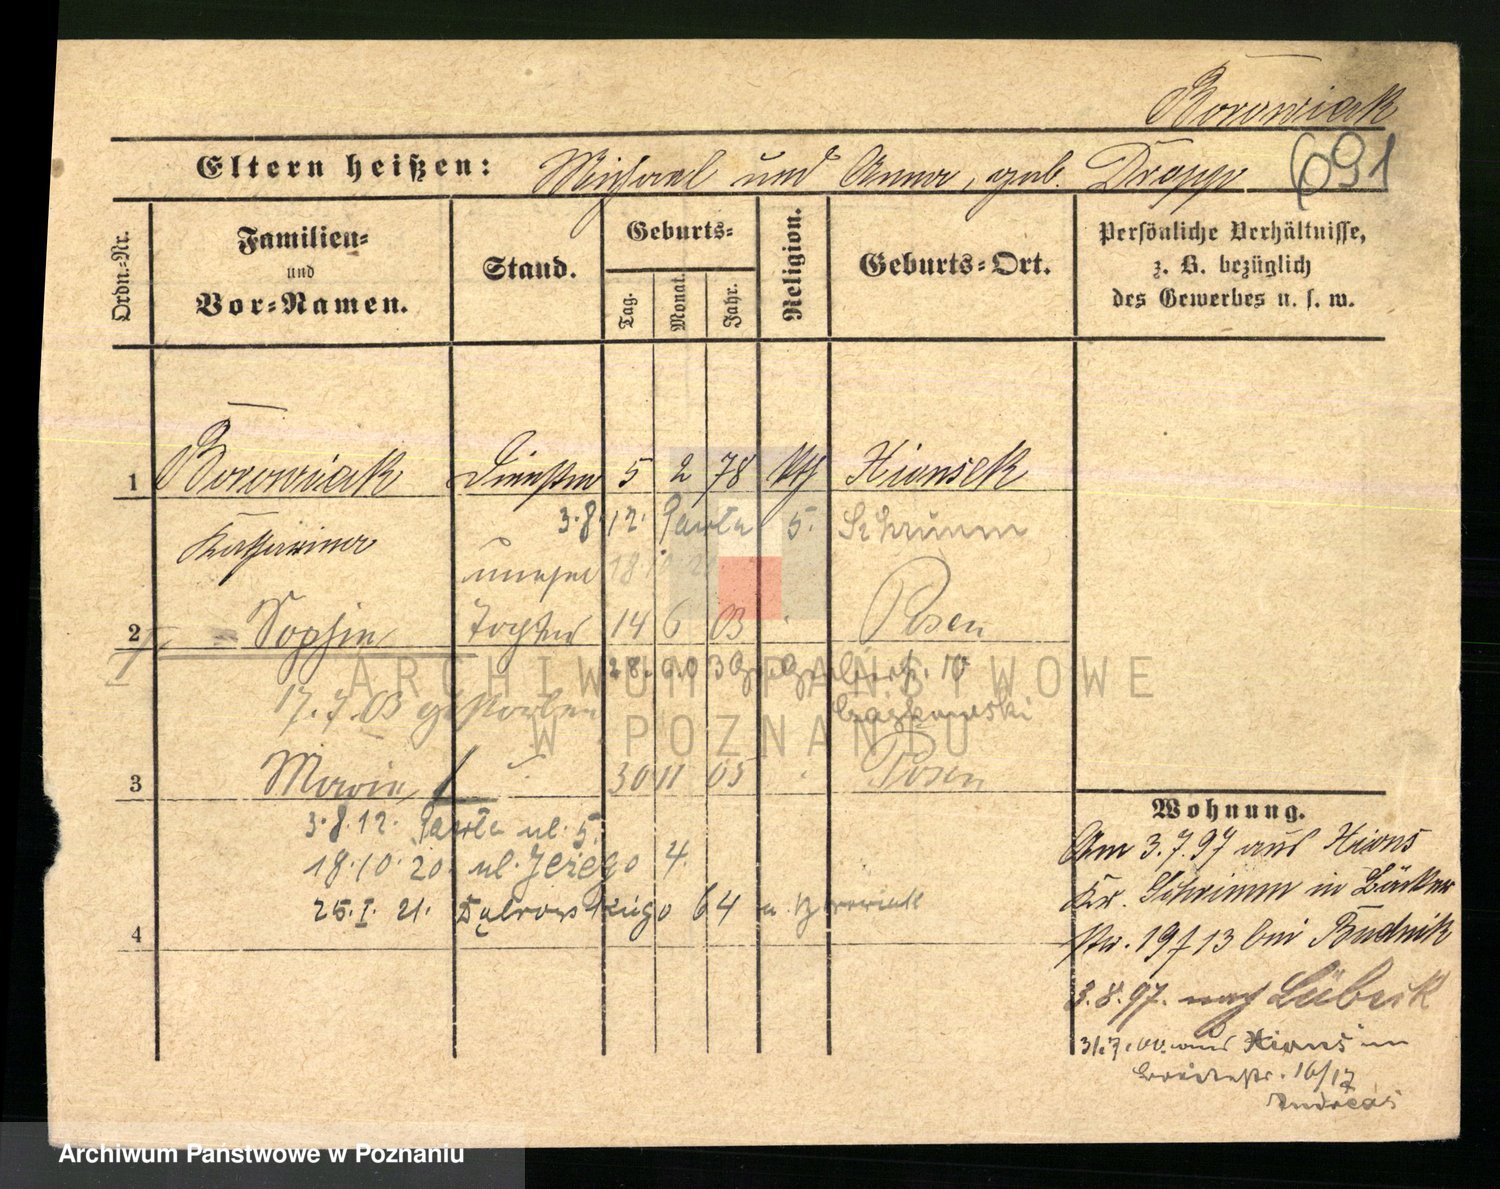 Borowiak
Eltern heißen: Michael und Anna, geb. Drapp
691
Ordn.-Nr.
Familien-
und
Vor-Namen.
Stand.
Geburts-
Tag.
Monat.
Jahr.
Religion.
Geburts-Ort.
Persönliche Verhältnisse,
z. B. bezüglich
des Gewerbes u. s. w.
1 Borowiak 5 2 78 kth Xionsek
3.8.12. Pawła 5. Schrimm
Katharina
unehel
2 Sophie Tochter 14 6 03 Posen
17.7.03 gestorben
3 Marie 30 11 05 Posen
3.8.12. Pawła ul. 5.
18.10.20. ul. Jeżego 4.
25.I.21. Dąbrowskiego 64
4
Wohnung.
Am 3.7.97 aus Xions
Kr. Schrimm in Bäcker
Str. 19 13 bei Budnik
3.8.97. nach Lübeck
31.7.00. aus Xions in
16/17
Andreas
ARCHIWUM PAŃSTWOWE
W POZNANIU
Archiwum Państwowe w Poznaniu